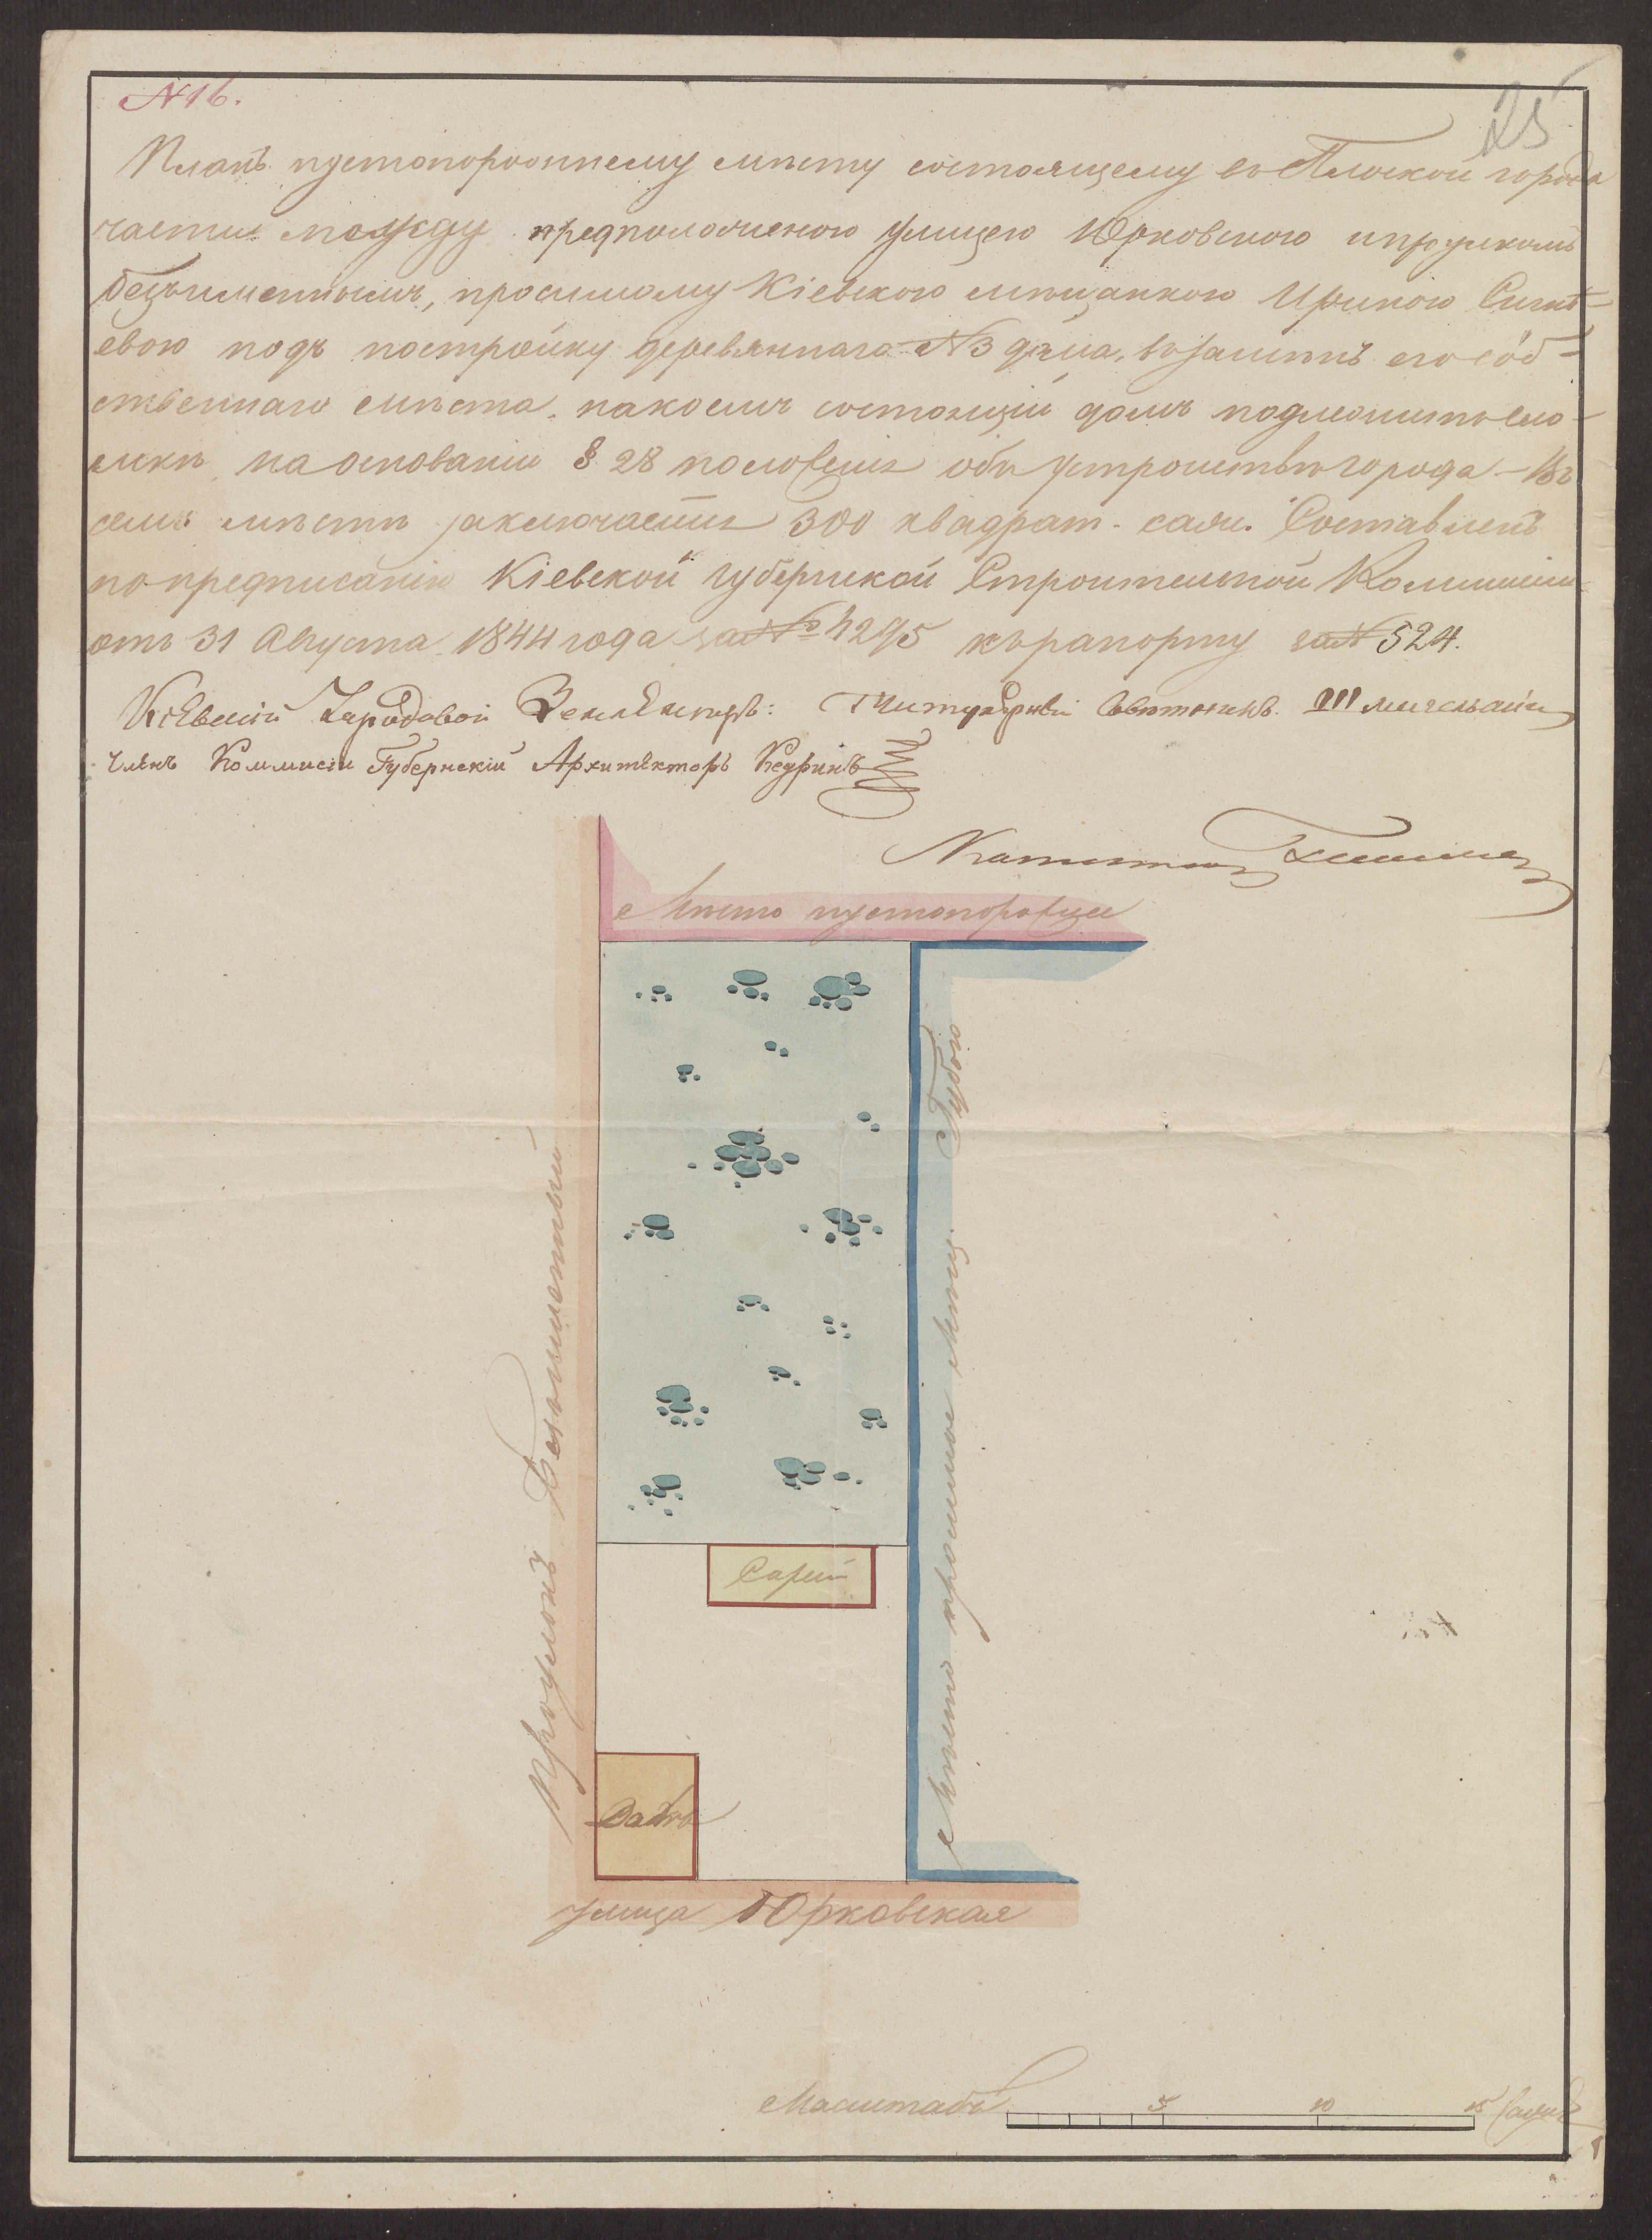 N 16.
25
Планъ пустопорожнему мѣсту состоящему въ Плоской города
части между предположеною улицею Юрковскою и проулкомъ
безъименнымъ, просимому Кіевскою мѣщанкою Ириною
евою подъ постройку деревяннаго N3 дома, взаменъ его соб-
ственнаго мѣста, на коемъ состоящій домъ подлежитъ сло-
мкѣ, на основаніи § 28 положенія объ устройствѣ города - Въ
семъ мѣстѣ заключается 300 квадрат. саж. Составленъ
по предписанію Кіевской Губернской Строительной Коммиссіи
отъ 31 Августа 1844 года за № 4295 къ рапорту за N 524.
Кіевскій Городовой Землемѣръ:
Членъ Коммисіи Губернскій Архитекторъ Кедринъ
Мѣсто пустопорожнее
Проулокъ Безъименный
Мѣсто просимое Мѣщ. Губою
Сарай
Улица Юрковская
Масштабъ 5 10 15 Сажень